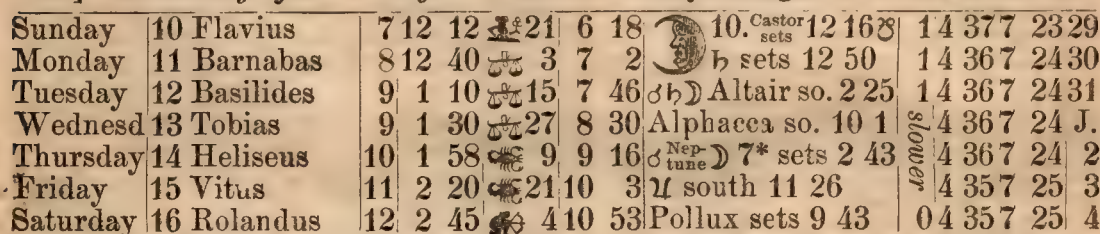 Sunday 10 Flavius 7 12 12 21 6 18 10. Castor sets 12 16 ☋ 1 4 37 7 23 29
Monday 11 Barnabas 8 12 40 ♎ 3 7 2 ♄ sets 12 50 1 4 36 7 24 30
Tuesday 12 Basilides 9 1 10 ♎ 15 7 46 ☌♄☽ Altair so. 2 25 1 4 36 7 24 31
Wednesd 13 Tobias 9 1 30 ♎ 27 8 30 Alphacca so. 10 1 slower 4 36 7 24 J.
Thursday 14 Heliseus 10 1 58 9 9 16 ☌ Neptune ☽ 7* sets 2 43 4 36 7 24 2
Friday 15 Vitus 11 2 20 21 10 3 ♃ south 11 26 4 35 7 25 3
Saturday 16 Rolandus 12 2 45 4 10 53 Pollux sets 9 43 0 4 35 7 25 4